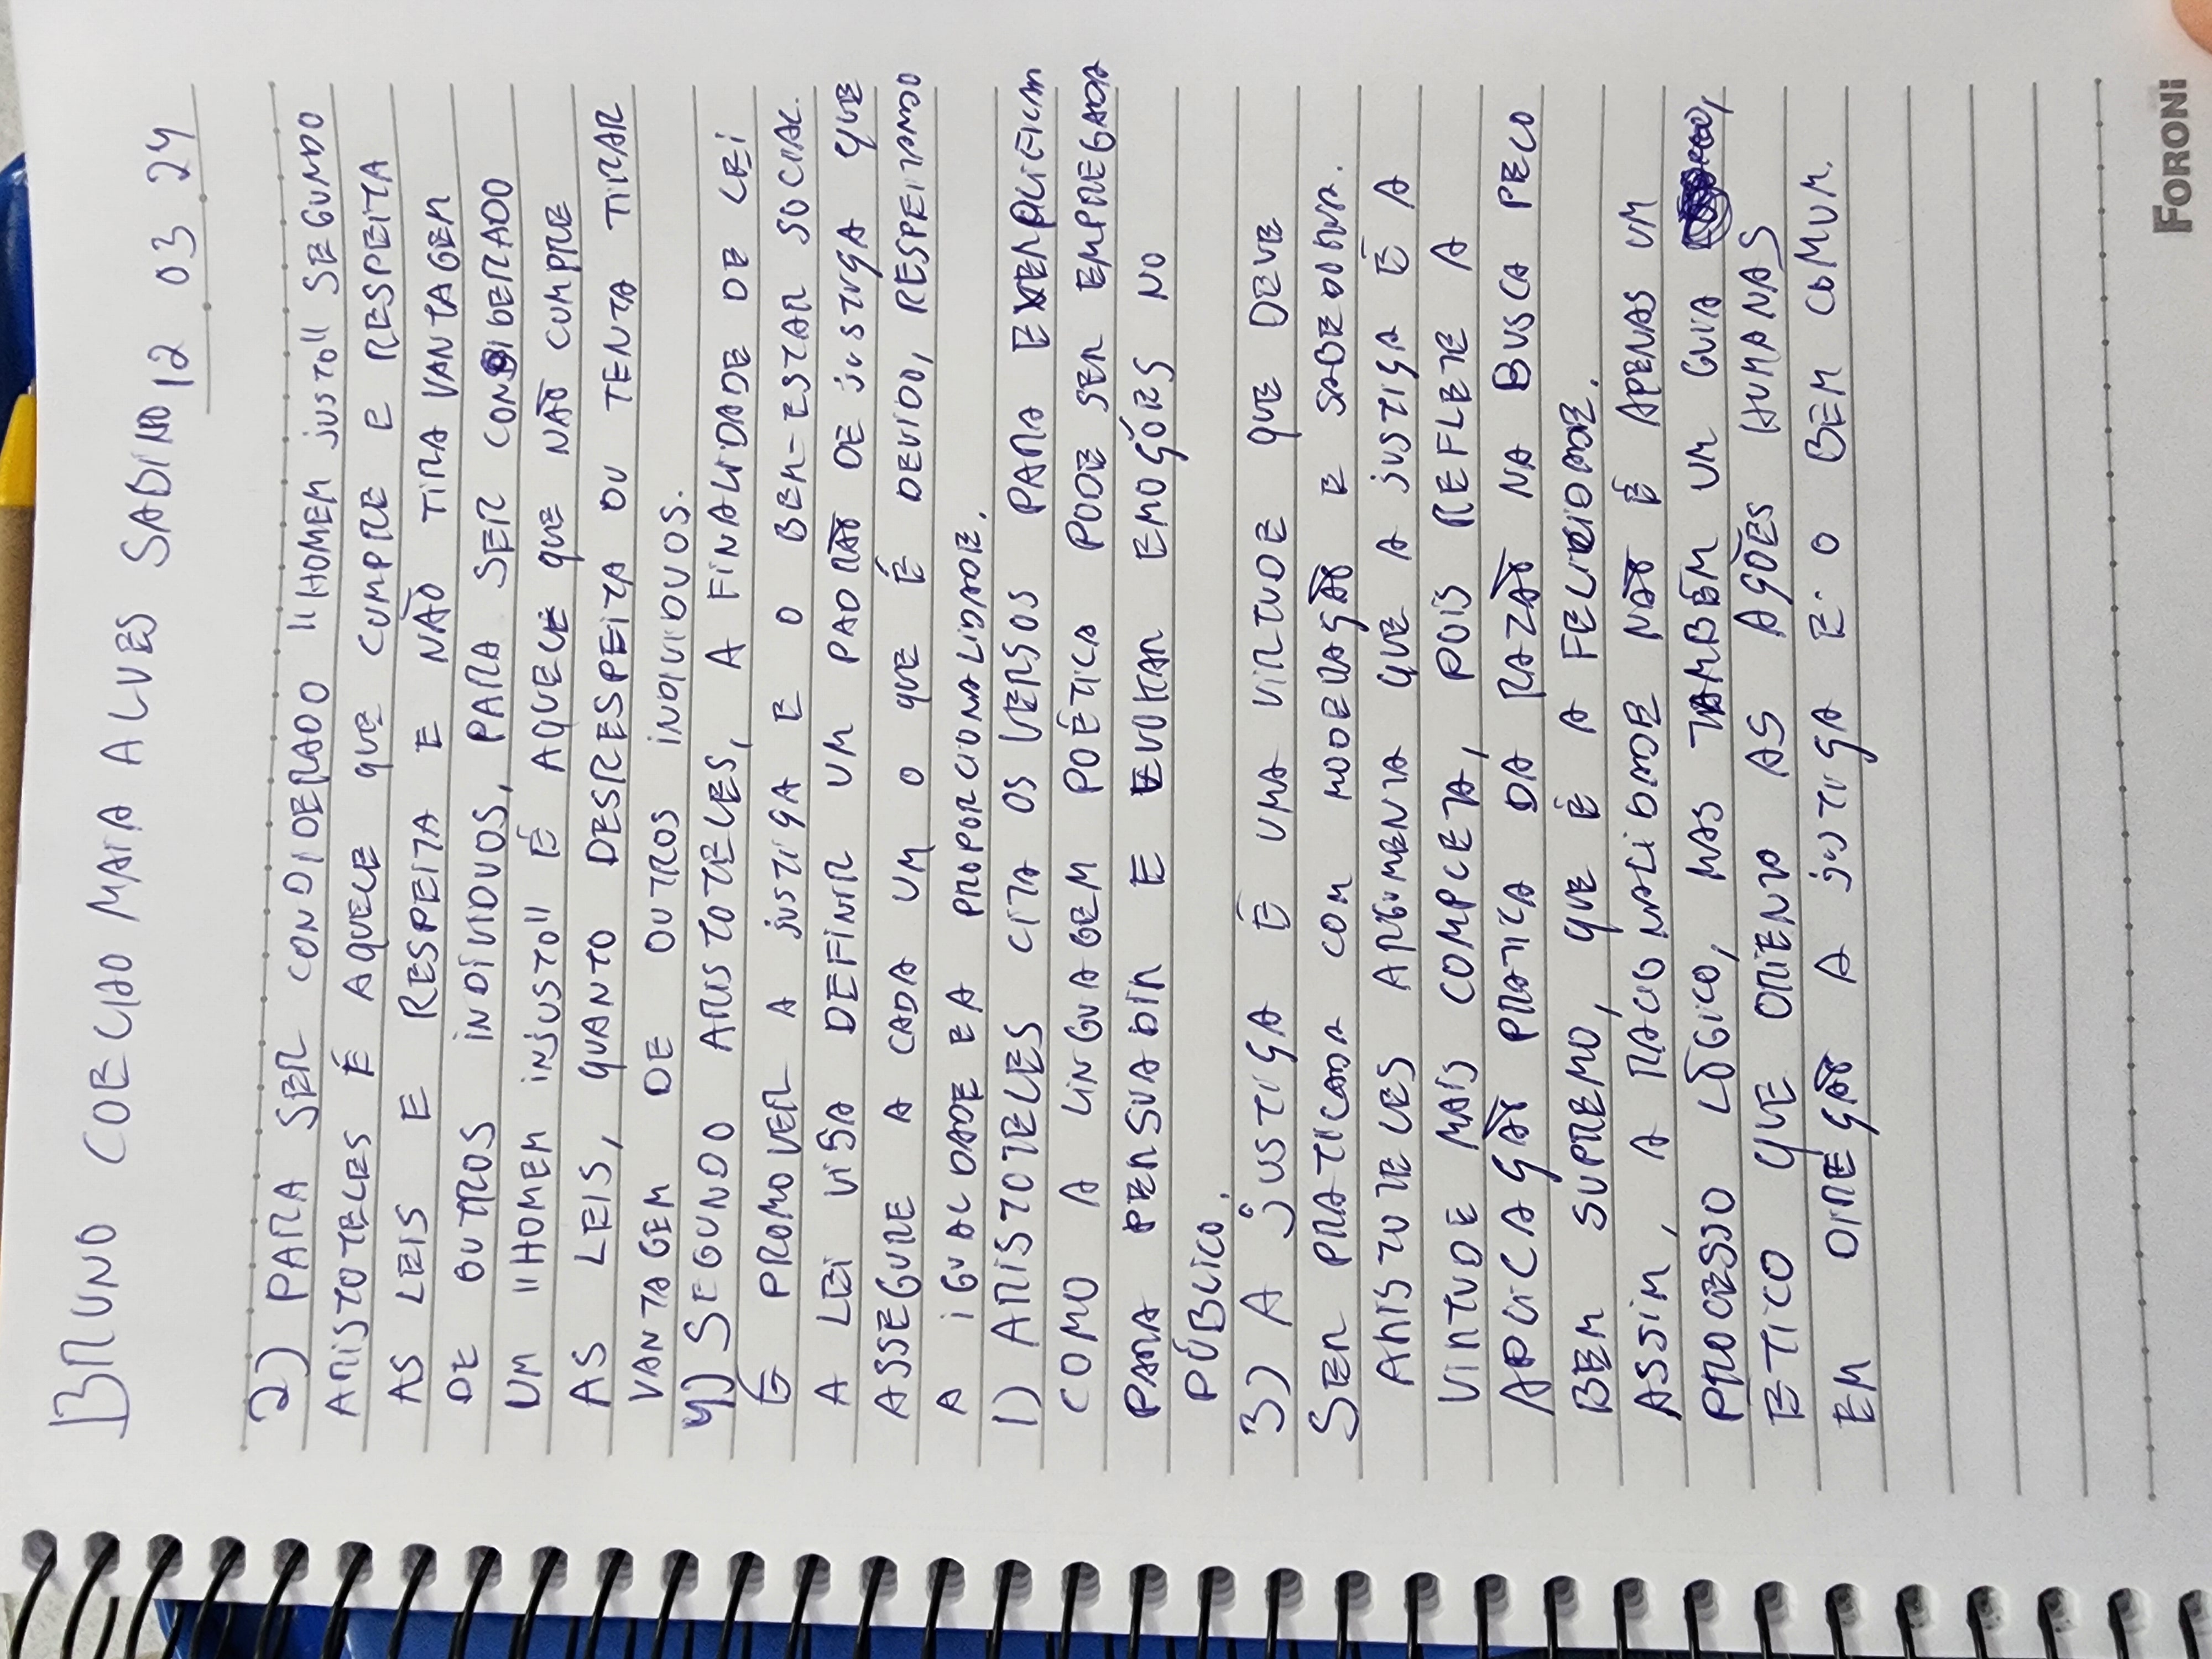 BRUNO COELHO MAIA ALVES SABINO 12 03 24
2) PARA SER CONDIDERADO "HOMEM JUSTO" SEGUNDO
ARISTOTELES É AQUELE QUE CUMPRE E RESPEITA
AS LEIS E RESPEITA E NÃO TIRA VANTAGEM
DE OUTROS INDÍVIDUOS, PARA SER CONSIDERADO
UM "HOMEM INJUSTO" É AQUELE QUE NÃO CUMPRE
AS LEIS, QUANTO DESRESPEITA OU TENTA TIRAR
VANTAGEM DE OUTROS INDIVIDUOS.
4) SEGUNDO ARISTOTELES, A FINALIDADE DE LEI
É PROMOVER A JUSTIÇA E O BEM-ESTAR SOCIAL.
A LEI VISA DEFINIR UM PADRÃO DE JUSTIÇA QUE
ASSEGURE A CADA UM O QUE É DEVIDO, RESPEITANDO
A IGUALDADE E A PROPORCIONALIDADE.
1) ARISTOTELES CITA OS VERSOS PARA EXEMPLIFICAR
COMO A LINGUAGEM POÉTICA PODE SER EMPREGADA
PARA PERSUADIR E EVOKAR EMOÇÕES NO
PÚBLICO.
3) A JUSTIÇA É UMA VIRTUDE QUE DEVE
SER PRATICADA COM MODERAÇÃO E SABEDORIA.
ARISTOTELES ARGUMENTA QUE A JUSTIÇA É A
VIRTUDE MAIS COMPLETA, POIS REFLETE A
APLICAÇÃO PRATICA DA RAZÃO NA BUSCA PELO
BEM SUPREMO, QUE É A FELICIDADE.
ASSIM, A RACIONALIDADE NÃO É APENAS UM
PROCESSO LÓGICO, MAS TAMBÉM UM GUIA
ETICO QUE ORIENTA AS AÇÕES HUMANAS
EM DIREÇÃO A JUSTIÇA E O BEM COMUM.
FORONI